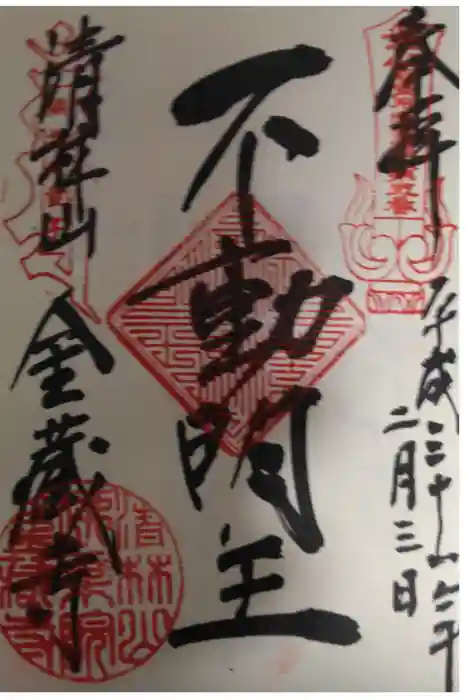 奉拝
平成三十一年
二月三日
不動明王
清林山
金蔵寺
清林山